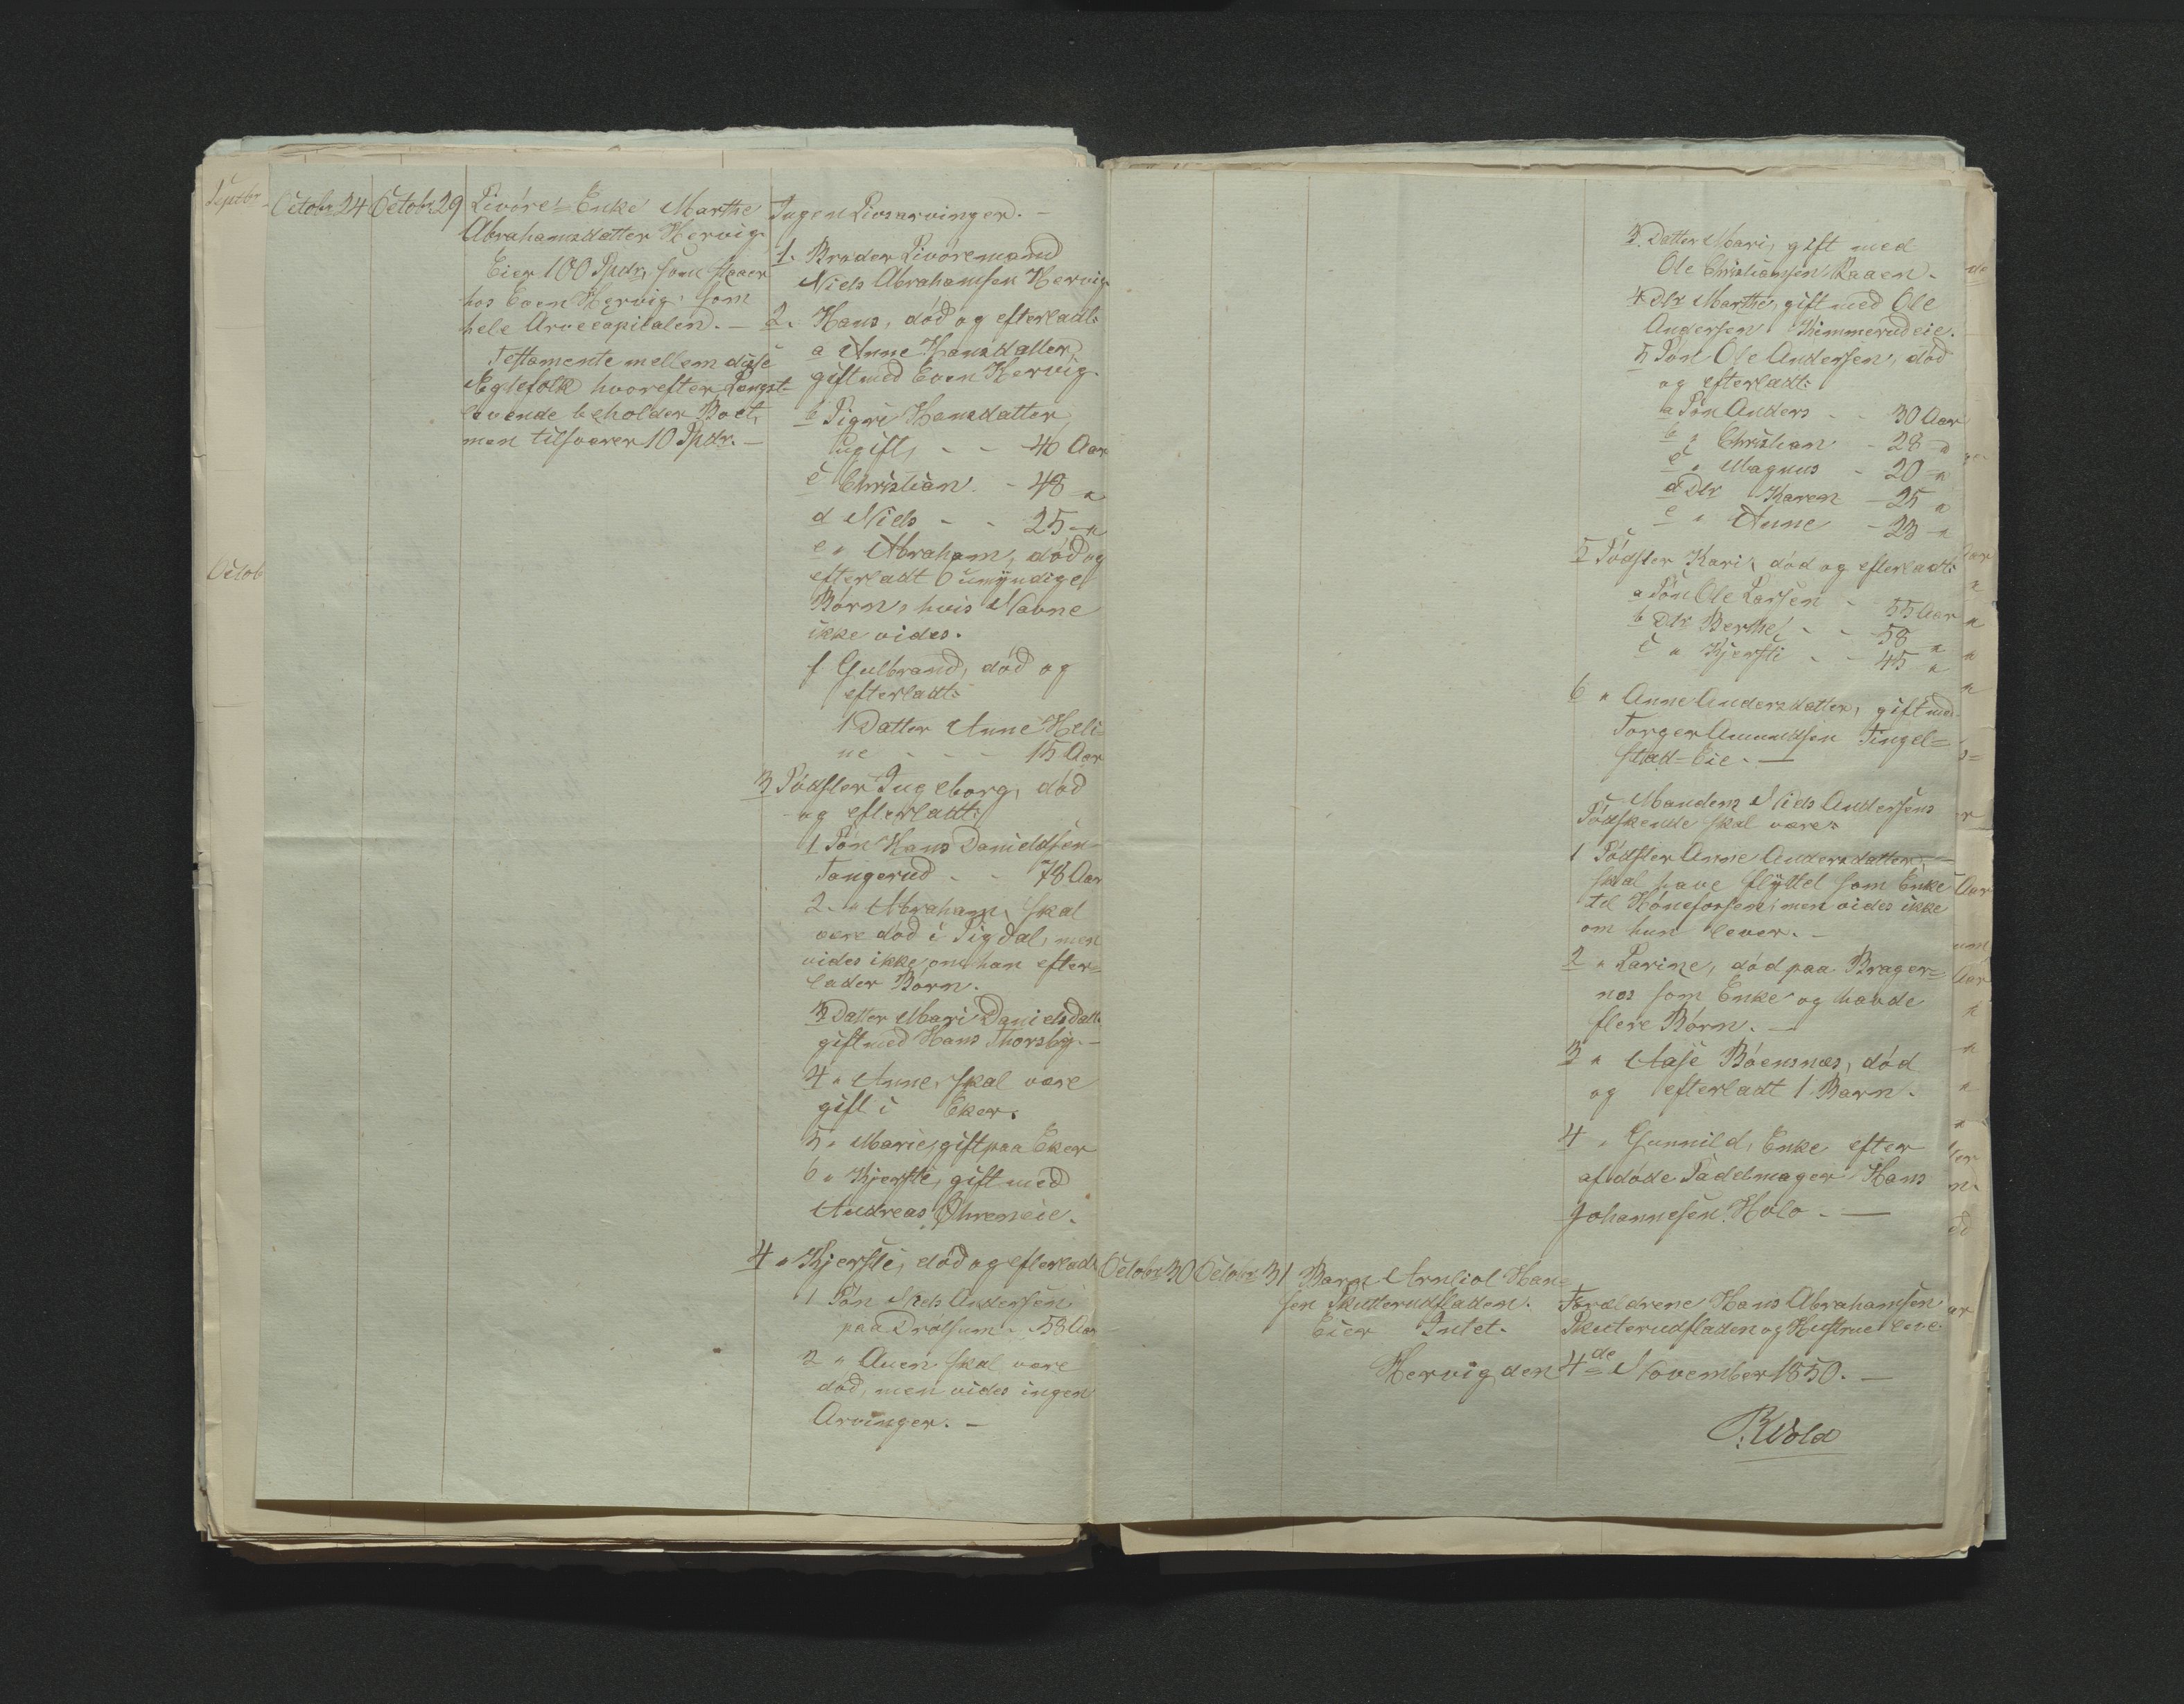 Septbr
Octob
Octobr 24
Octobr 29
Livøre-Enke Marthe
Abrahamsdatter Hervig.
Eier 100 Spdr, som staaer
hos Even Hervig, som
hele Arvecapitalen. —
Testamente mellem disse
Egtefolk hvorefter Længst-
levende beholder Boet,
men tilsvarer 10 Spdr. —
Ingen Livsarvinger. —
1. Broder Livøremand
Niels Abrahamsen Hervig
2. Hans, død og efterladt:
a Anne Hansdatter,
gift med Even Hervig.
b Sigri Hansdatter,
ugift, - - 40 Aar
c Christian. - 48 "
d Niels - - 25 "
e " Abraham, død og
efterladt 6 umyndige
Børn, hvis Navne
ikke vides.
f Gulbrand, død og
efterladt:
1 Datter Anne Heli-
ne - - - 15 Aar
3 Sødster Ingeborg, død
og efterladt:
1 Søn Hans Danieldsen
Tangerud - - 78 Aar
2. " Abraham, skal
være død i Sigdal, men
vides ikke om han efter=
lader Børn.
3 Datter Mari Danielsdatt.
gift med Hans Thorsby. —
4 " Anne, skal være
gift i Eker.
5 " Marie, gift paa Eker
6 " Kjersti, gift med
Andreas Øhreneie.
4 " Kjersti, død og efterladt:
1 Søn Niels Andersen
paa Drolsum - 58 Aar
2 " Auen skal være
død, men vides ingen
Arvinger. —
3. Datter Mari, gift med
Ole Christiansen Raaen.
4 Dtr Marthe, gift med Ole
Andersen Kimmerud eie.
5 Søn Ole Andersen, død
og efterladt:
a Søn Anders - - 30 Aar
b " Christian - 28 "
c " Magnus - 20 "
d Dtr Karen - 25 "
e " Anne - 23 "
5 Sødster Kari, død og efterladt:
a Søn Ole Larsen - 55 Aar
b Dtr Berthe, - - 58 "
c " Kjersti - - 45 "
6 " Anne Andersdatter, gift med
Torger Amundsen Tingel=
stad-Eie. —
Manden Niels Andersens
Sødskende skal være:
1 Sødster Anne Andersdatter, —
skal have flyttet som Enke
til Hønefossen, men vides ikke
om hun lever. —
2 " Karine, død paa Brager=
nes som Enke og havde
flere Børn. —
3 " Aase Bøensnæs, død
og efterladt 1 Barn.
4 " Gunnild, Enke efter
afdøde Sadelmager Hans
Johannesen Hølo. —
Octobr 30
Octobr 31
Barn Arnliot Han-
sen Skutterudfladen.
Eier Intet.
Forældrene Hans Abrahamsen
Skuterudfladen og Hustrue leve.
Hervig den 4de November 1850. —
R. Wold